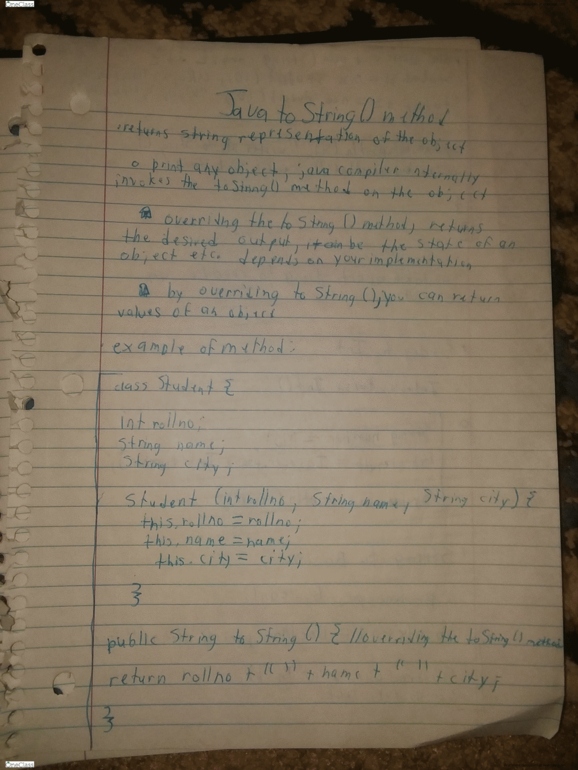 OneClass
Java to String() method
returns string representation of the object
o print any object, java compiler internally
invokes the toString() method on the object
overriding the to String () method, returns
the desired output, it can be the state of an
object etc. depends on your implementation
by overriding to String (), you can return
values of an object
example of method:
class Student {
int rollno;
String name;
String city;
Student (int rollno, String name, String city) {
this.rollno = rollno;
this.name = name;
this.city = city;
}
public String to String () { //overriding the toString() method
return rollno + " " + name + " " + city;
}
OneClass
OneClass